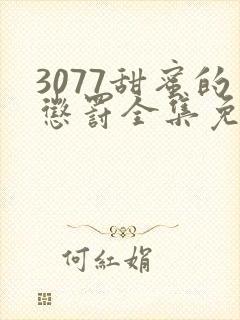 3077甜蜜的
懲罰全集免
何紅娟